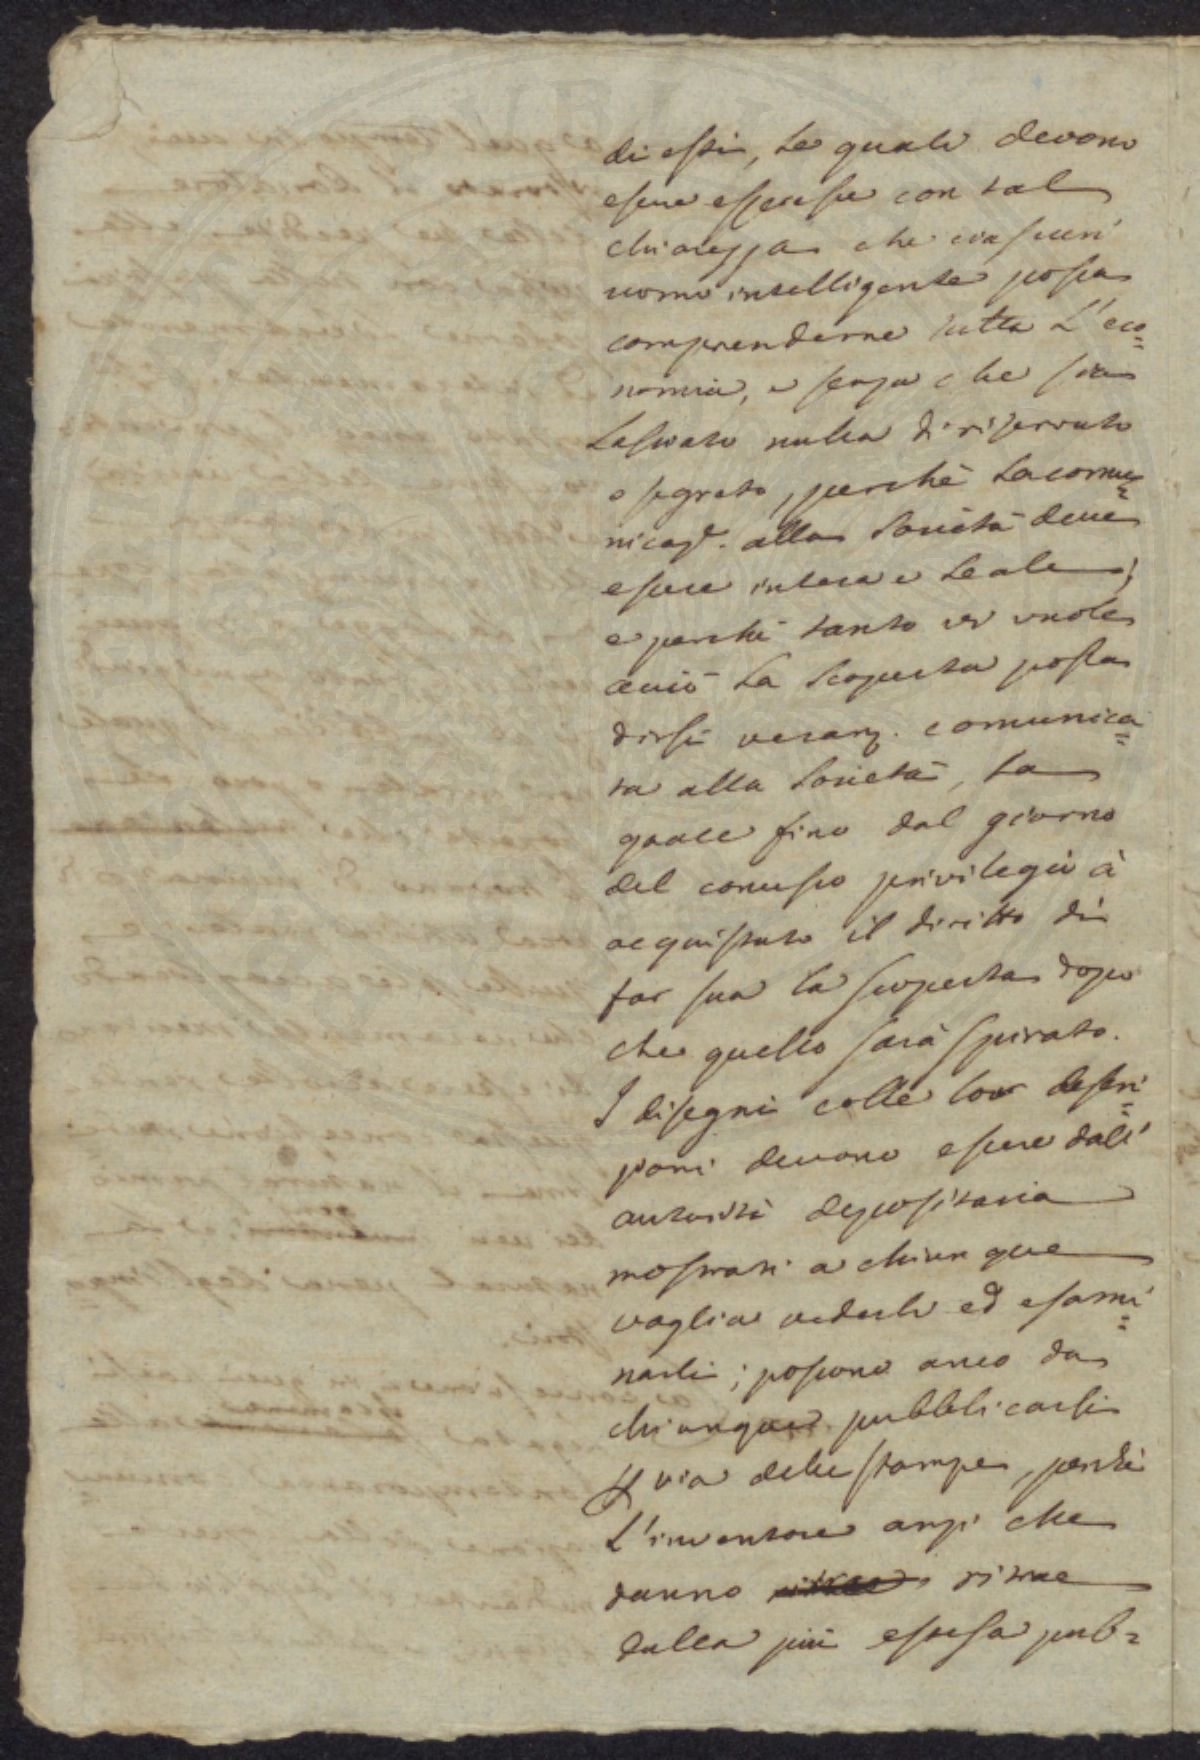 di essi, le quali devono
essere espresse con tal
chiarezza che ciascun
uomo intelligente possa
comprenderne tutta l'eco=
nomia, e senza che sia
lasciato nulla di riservato
o segreto, perchè la comu=
nicaze. alla Società deve
essere intera e leale;
e perchè tanto vi vuole
acciò la scoperta possa
dirsi veram. comunica=
ta alla Società, la
quale fino dal giorno
del concesso privilegio à
acquistato il diritto di
far sua la scoperta dopo
che quello sarà spirato.
I disegni colle loro descri=
zioni devono essere dall'
autorità depositaria
mostrati a chiunque
voglia vederli ed esami=
narli; possono anco da
chiunque pubblicarsi
per via delle stampe, perchè
l'inventore anzi che
danno ritrae
dalla più estesa pub=